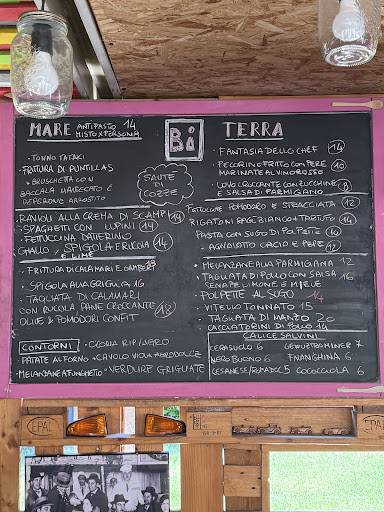 MARE ANTIPASTO 14
MISTO X PERSONA
• TONNO TATAKI
FRITTURA DI PUNTILLAS
• BRUSCHETTA CON
BACCALA MANTECATO E
PEPERONE ARROSTITO
SAUTÉ DI
COZZE
• RAVIOLI ALLA CREMA DI SCAMPI 14
• SPAGHETTI CON LUPINI 14
• FETTUCCINA DATTERINO
GIALLO, SPIGOLA E RUCOLA 14
E LIME
• FRITTURA DI CALAMARI E GAMBERI 18
• SPIGOLA ALLA GRIGLIA 16
• TAGLIATA DI CALAMARI
CON RUCOLA PANE CROCCANTE
OLIVE & POMODORI CONFIT 18
CONTORNI • CICORIA RIPASSATA
• PATATE AL FORNO • CAVOLO VIOLA AGRODOLCE
• MELANZANE A FUNGHETTO • VERDURE GRIGLIATE
Bi
TERRA
• FANTASIA DELLO CHEF 14
• PECORINO FRITTO CON PERE
MARINATE AL VINO ROSSO 10
• UOVO CROCCANTE CON ZUCCHINE
E SALSA DI PARMIGIANO 8
FETTUCCINE POMODORO E STRACCIATA 12
RIGATONI BRGZIANO E TARTUFO 14
PASTA CON SUGO DI POLPETTE 10
• AGNOLOTTO CACIO E PEPE 12
• MELANZANE ALLA PARMIGIANA 12
• TAGLIATA DI POLLO CON SALSA
SENAPE LIMONE E MIELE 16
• POLPETTE AL SUGO 14
• VITELLO TONNATO 15
TAGLIATA DI MANZO 20
CACCIATORINI DI POLLO 14
CALICE SALVINI
CERASUOLO 6 GEWUZTRAMINER 7
NERO BUONO 6 FIANGHINA 6
CESANESE/ROMA DOC 5 COCOCCIOLA 6
EPAL
EPAL